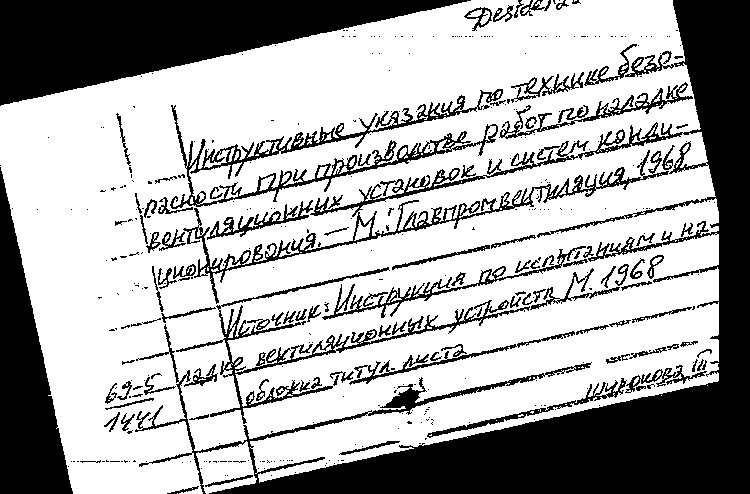 Desidera
Инструктивные указания по технике безо-
пасности при производстве работ по наладке
вентиляционных установок и систем конди-
ционирования. — М.: Главпромвентиляция, 1968
Источник: Инструкция по испытаниям и на-
ладке вентиляционных устройств М. 1968
обложка титул. листа
69-5
1441
Широкова III-